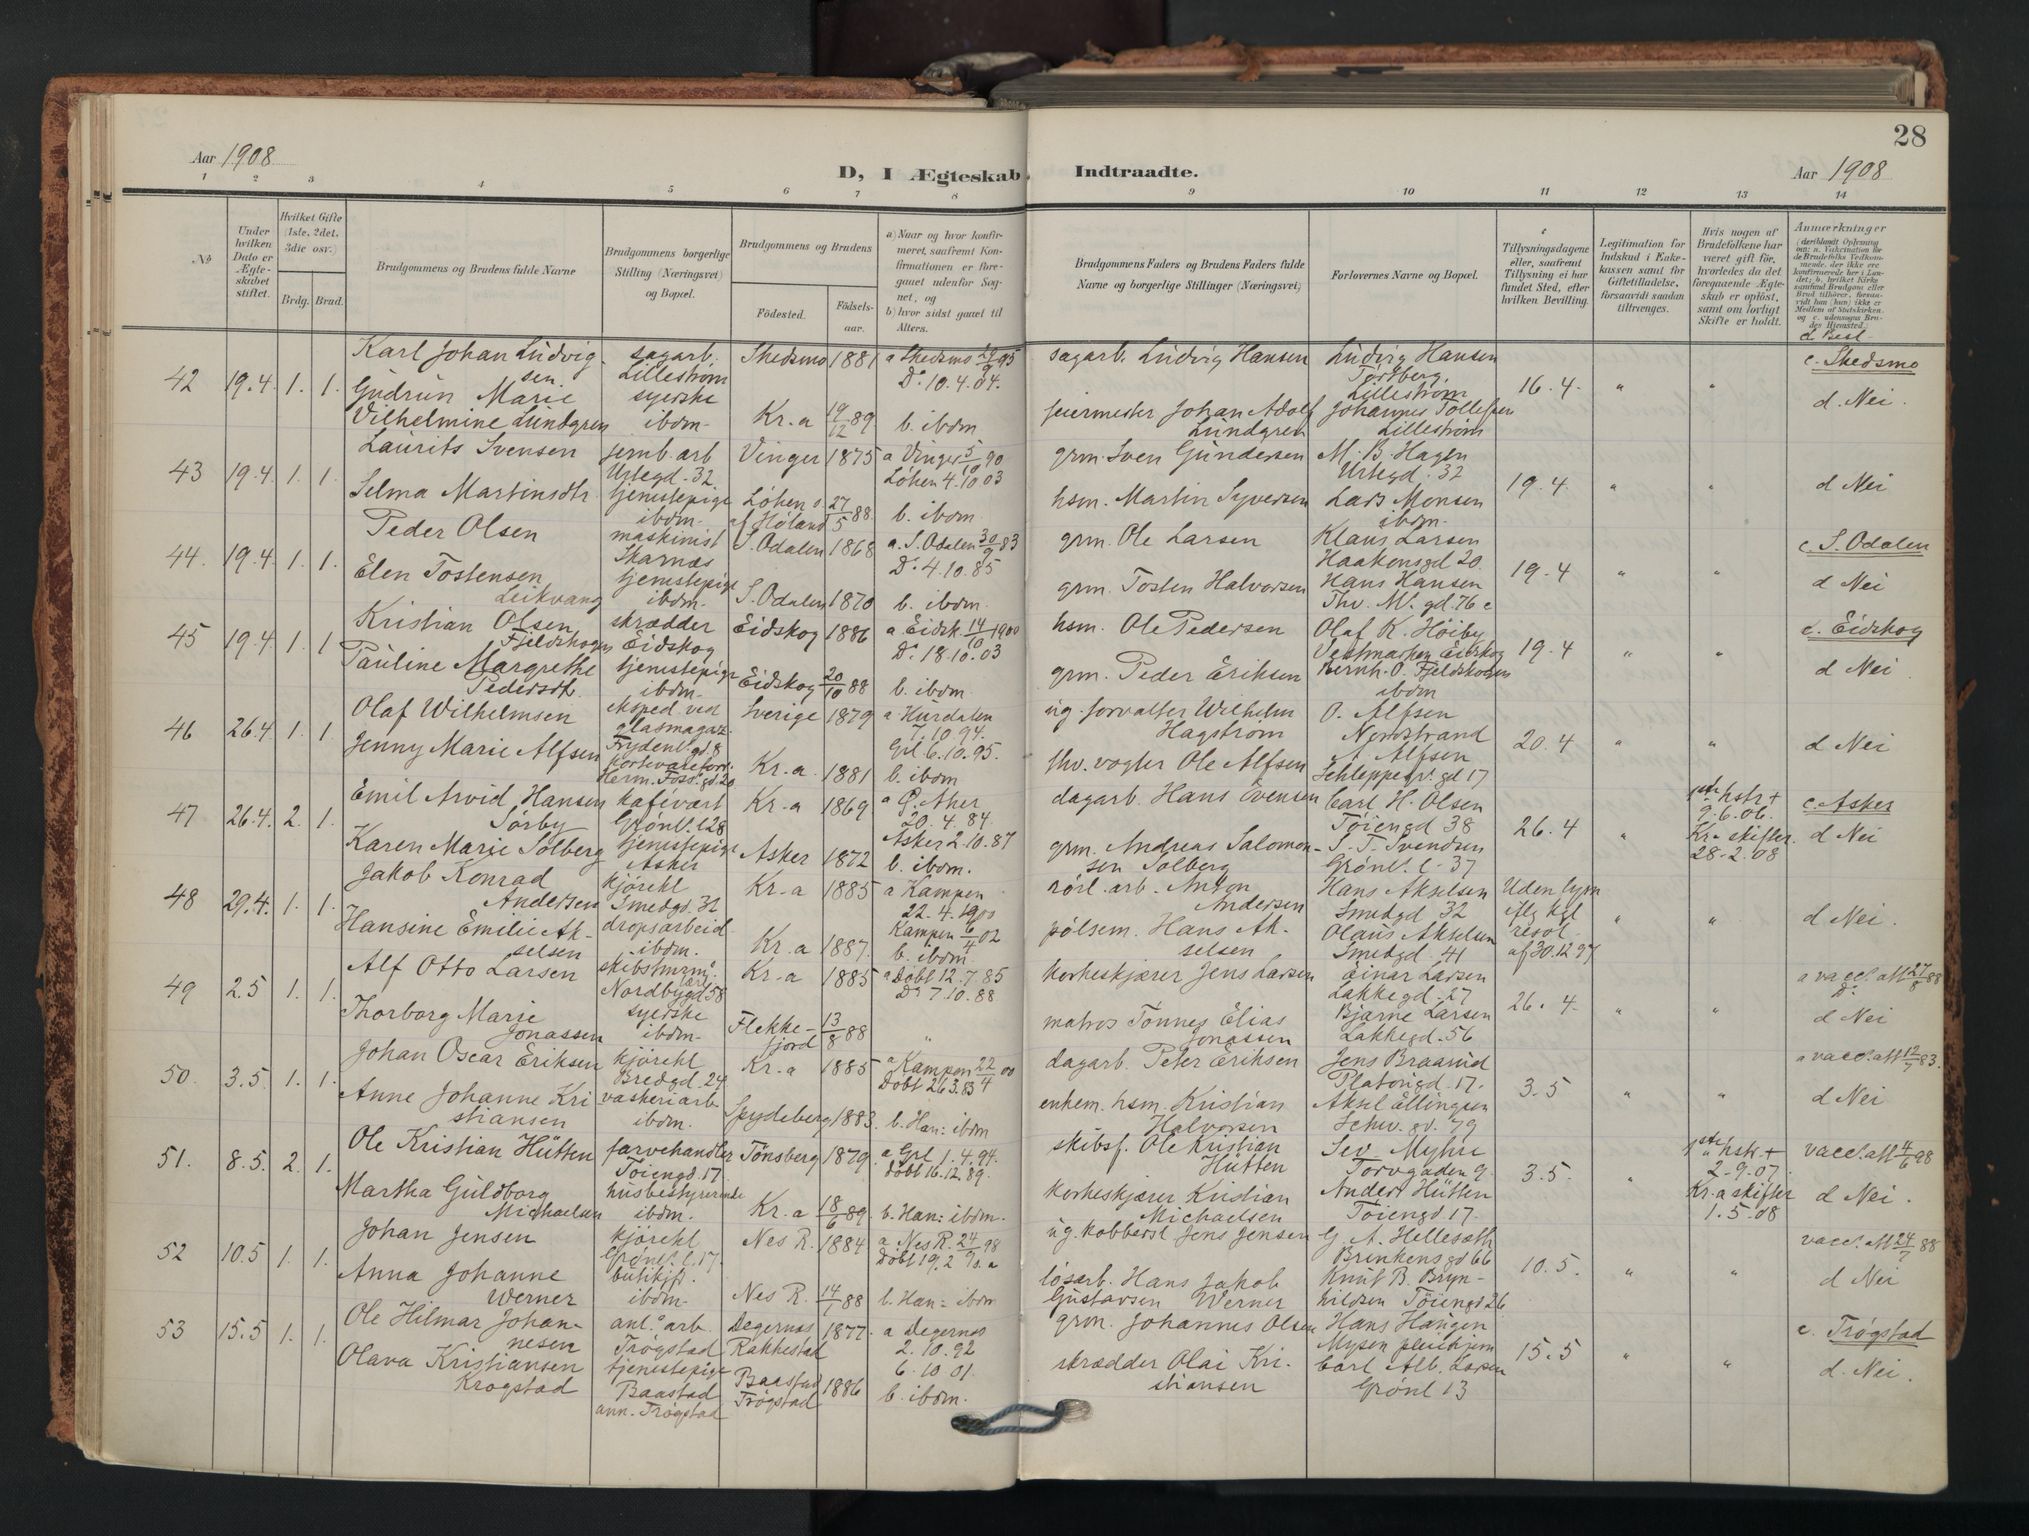 28
Aar 1908
D, I Ægteskab Indtraadte.
Aar 1908
1 2 3 4 5 6 7 8 9 10 11 12 13 14
№
Under hvilken Dato er Ægteskabet stiftet.
Hvilket Gifte (1ste, 2det, 3die osv.)
Brdg. Brud.
Brudgommens og Brudens fulde Navne
Brudgommens borgerlige Stilling (Næringsvei) og Bopæl.
Brudgommens og Brudens
Fødested.
Fødselsaar.
a) Naar og hvor konfirmeret, saafremt Konfirmationen er foregaaet udenfor Sognet, og
b) hvor sidst gaaet til Alters.
Brudgommens Faders og Brudens Faders fulde Navne og borgerlige Stillinger (Næringsvei)
Forlovernes Navne og Bopæl.
Tillysningsdagene eller, saafremt Tillysning ei har fundet Sted, efter hvilken Bevilling.
Legitimation for Indskud i Enkekassen samt for Giftetilladelse, forsaavidt saadan tiltrænges.
Hvis nogen af Brudefolkene har været gift før, hvorledes da det foregaaende Ægteskab er opløst, samt om lovligt Skifte er holdt.
Anmærkninger
42 19.4 1. 1.
Karl Johan Ludvigsen.
sagarb. Lillestrøm
Skedsmo 1881
a Skedsmo 29/9 95
Do. 10.4.04.
sagarb. Ludvig Hansen
Ludvig Hansen
Lillestrøm
16.4 " "
c. Skedsmo
Gudrun Marie Vilhelmine Lundgren
syerske ibdm.
Kr.a 19/12 89
b. ibdm.
feiermester Johan Adolf Lundgren
Johannes Tollefsen
Lillestrøm
d. Nei.
43 19.4 1. 1.
Laurits Svensen
jernb. arb Urtegd. 32
Vinger 1875
a Vinger 5/10 90
Løken 4.10 03
grm. Sven Gundersen
M. B. Hagen
Urtegd. 32
19.4 " "
Selma Martinsdtr
tjenestepige ibdm.
27/5 88.
b. ibdm.
hsm. Martin Syversen
Lars Monsen
ibdm.
d Nei
44. 19.4. 1. 1.
Peder Olsen
maskinist Skarnæs
S. Odalen 1868
a. S. Odalen 30/9 83
Do. 4.10.85
grm. Ole Larsen
Klaus Larsen
Haakensgd 20.
19.4 " "
c. S. Odalen
Elen Tostensen Leikvang
tjenestepige ibdm.
S. Odalen 1870
b. ibdm.
grm. Tosten Halvorsen
Hans Hansen
Thv. M. gd. 76 c
d Nei
45 19.4 1. 1
Kristian Olsen Fjeldskogen
skrædder Eidskog
Eidskog 1886
a Eidsk. 14/10 1900
Do. 18.10.03
hsm. Ole Pedersen
Olaf K. Høiby
Vestmarken Eidskog
19.4 " "
c. Eidskog
Pauline Margrethe Pedersdt.
tjenestepige ibdm.
Eidskog 20/10 88
b. ibdm.
grm. Peder Eriksen
Bernh. O. Fjeldskogen
ibdm
d Nei
46 26.4 1. 1.
Olaf Wilhelmsen
eksped. ved glasmagaz. Frydenl. gd. 8
Sverige 1879
a Hurdalen
7.10.94.
Grl. 6.10.95.
ug. forvalter Wilhelm Hagstrøm
O. Alfsen
Nordstrand
20.4 " "
Jenny Marie Alfsen
Herm. Foss. gd. 20
Kr.a. 1881
b. ibdm
thv. vogter Ole Alfsen
A. Alfsen
Schleppegr. gd 17
d Nei
47 26.4. 2. 1.
Emil Arvid Hansen Sørby
kafévært Grønl. l 28
Kr.a 1869
20.4.84
dagarb. Hans Evensen
Carl H. Olsen
Tøiengd 38
26.4 "
1ste hstr +
9.6.06.
c. Asker
Karen Marie Solberg
tjenestepige Asker
Asker 1872
Asker 2.10.87
b. ibdm.
grm. Andreas Salomonsen Solberg
Svendsen
Grønl. l. 37
Kr.a skifter.
28.2.08
d Nei
48 29.4. 1. 1.
Jakob Konrad Andersen
kjørekl Smedgd. 32
Kr.a 1885
a Kampen
22.4.1900
rørl. arb. Anton Andersen
Hans Akselsen
Smedgd 32
Uden lysn iflg kgl resol af 30.12.97 " "
Hansine Emilie Akselsen
ibdm.
Kr.a 1887.
Kampen 6/4 02
b. ibdm.
pølsem. Hans Akselsen
Olaus Akselsen
Smedgd. 41
d Nei.
49 2.5 1. 1.
Alf Otto Larsen
Nordbygd 58
Kr.a 1885
a Døbt 12.7.85
Do 7.10.88
korkeskjærer Jens Larsen
Einar Larsen
Lakkegd. 27
26.4. " "
a vacc. att 27/8 88
Do
Thorborg Marie Jonassen
syerske ibdm.
Flekkefjord 13/8 88
"
matros Tønnes Elias Jonassen
Bjarne Larsen
Lakkegd. 56
d Nei
50. 3.5. 1. 1.
Johan Oscar Eriksen
kjørekl Bredgd. 24
Kr.a 1885
a Kampen 22/4 00
Døbt 26.3.83
dagarb. Peter Eriksen
Jens Braarud
Platougd. 17.
3.5 " "
a vacc. att 12/7 83.
Anne Johanne Kristiansen
vaskeriarb ibdm.
Spydeberg 1883.
b. Han: ibdm
enkem. hsm. Kristian Halvorsen
Aksel Ellingsen
Schw. gd. 79
d Nei
51. 8.5. 2. 1.
Ole Kristian Hütten
farvehandler Tøiengd. 17
Tønsberg 1879
a Grl 1.4.94.
Døbt 16.12.89.
skibsf. Ole Kristian Hütten
Sev. Myhre
Torvgaden 9.
3.5. "
1ste hstr. +
2.9.07.
vacc. att 4/6 98
Martha Guldborg Michaelsen
husbestyrerinde ibdm.
Kr.a 18/6 89.
b. Han: ibdm.
korkeskjærer Kristian Michaelsen
Anders Hütten
Tøiengd 17.
Kr.a skifter
1.5.08
d Nei.
52 10.5 1. 1.
Johan Jensen
kjørekl Grønl. l. 17.
Nes R. 1884
a Nes R. 24/4 98
Døbt 19.2
ug. kobbersl Jens Jensen
G. A. Hellesøth
Brinkensgd 66
10.5. " "
vacc. att 24/7 88
Anna Johanne Werner
butikjf. ibdm.
Nes R. 14/1 88
b. Han: ibdm
løsarb. Hans Jakob Gustavsen Werner
Knut B. Brynhildsen Tøiengd 26
d Nei
53 15.5 1. 1.
Ole Hilmar Johannesen
anl. arb. Trøgstad
Degernæs Rakkestad 1877.
a Degernæs
2.10.92
6.10.01.
grm. Johannes Olsen
Hans Haugen
Mysen pleiehjem
15.5 " "
c. Trøgstad
Olava Kristiansen Krogstad
tjenestepige Baastad ann. Trøgstad
Baastad Trøgstad 1886
b. ibdm.
skrædder Olai Kristiansen
Carl Alb. Larsen
Grønl 13
d. Nei.